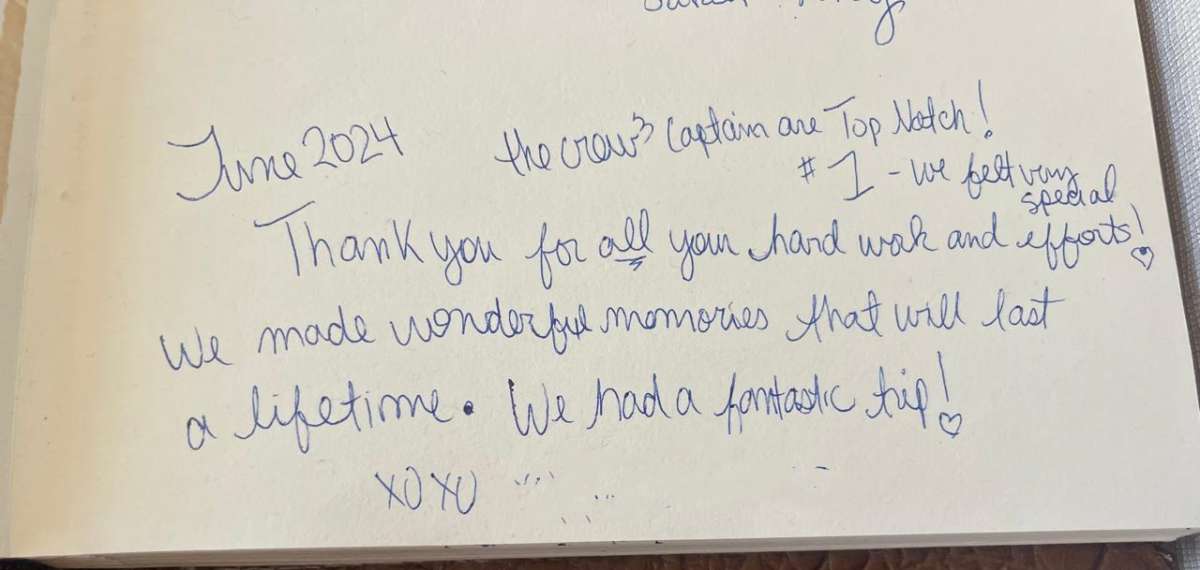 June 2024 the crew & Captain are Top Notch!
#1 - we felt very
special
Thank you for all your hard work and efforts! ♡
We made wonderful memories that will last
a lifetime. We had a fantastic trip! ♡
XOXO